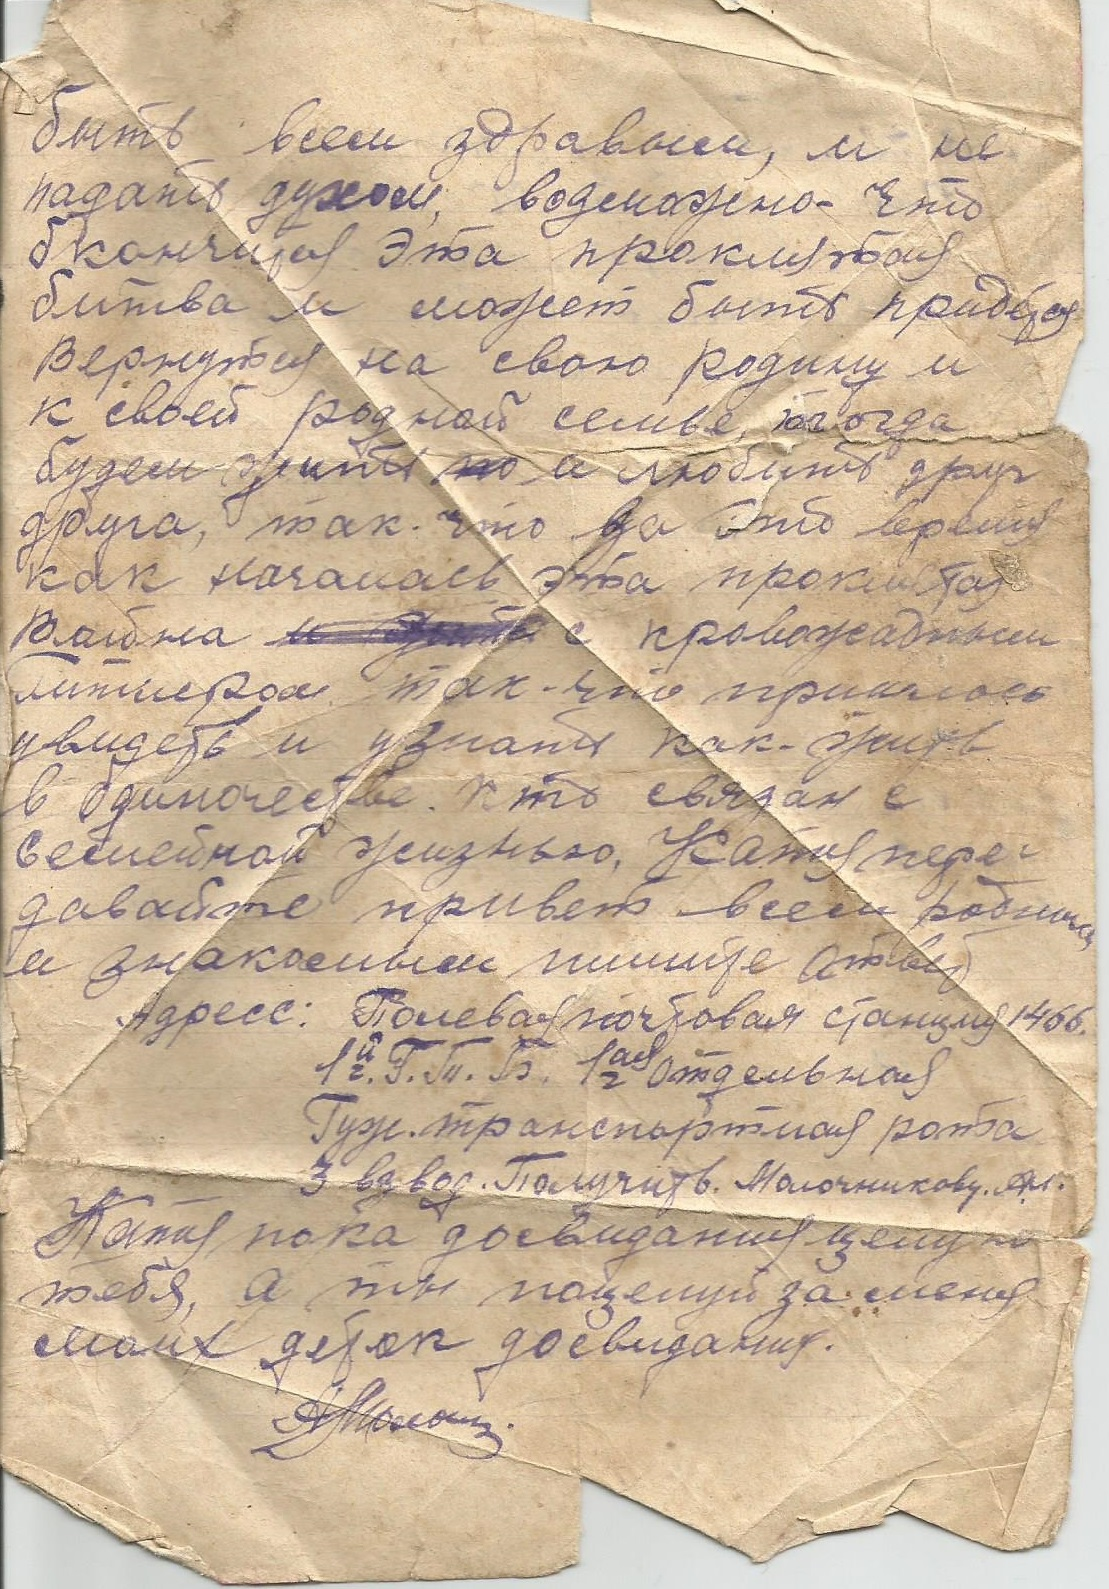 быть всем здравыми, и не
падать духом, возможно- что
окончится эта проклятая
битва и может быть придётся
вернутся на свою родину и
к своей родной семье, тогда
будем жить и любить друг
друга, так-что за это время
как началась эта проклятая
война с кровожадным
Гитлером так-что пришлось
увидеть и узнать как-жить
в одиночестве. кто связан с
семейной жизнью, Катя пере-
давайте привет всем родным
и знакомым пишите ответ
Адресс: Полевая почтовая станция 1466.
1й Г.Т.Б. 1ая отдельная
Гуж. транспортная рота
3 взвод. Получить. Молочникову. А.И.
Катя пока досвидания целую
тебя, а ты поцелуй за меня
моих деток досвидания.
АМолоч.